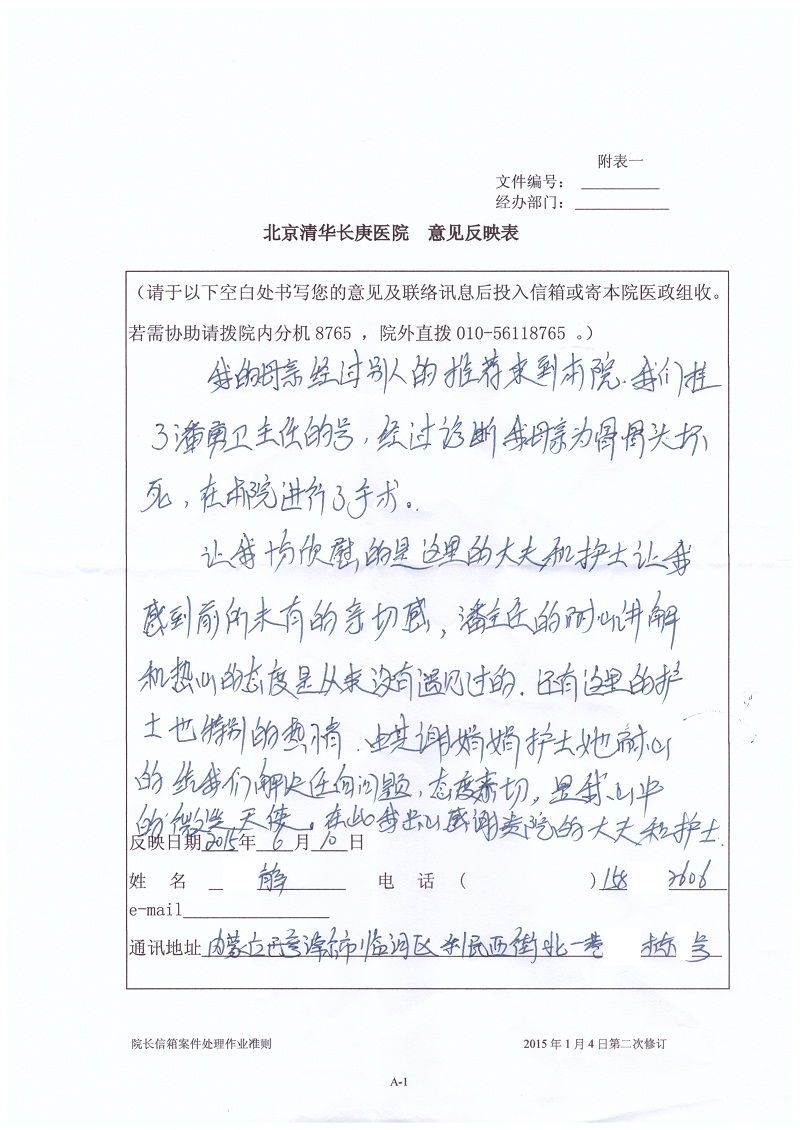 附表一
文件编号：
经办部门：
北京清华长庚医院 意见反映表
（请于以下空白处书写您的意见及联络讯息后投入信箱或寄本院医政组收。
若需协助请拨院内分机 8765 ，院外直拨 010-56118765 。）
我的母亲经过别人的推荐来到本院.我们挂
了潘勇卫主任的号，经过诊断我母亲为骨骨头坏
死，在本院进行了手术。
让我十分欣慰的是这里的大夫和护士让我
感到前所未有的亲切感，潘主任的耐心讲解
和热心的态度是从来没有遇见过的.还有这里的护
士也特别的热情.尤其谢娟娟护士她耐心
的给我们解决任何问题，态度亲切，是我心中
的微笑天使。在此我衷心感谢贵院的大夫和护士.
反映日期2015年 6 月 10 日
姓 名 静 电 话（ ）158 2606
e-mail
通讯地址 内蒙古巴彦淖尔市临河区利民西街北一巷 栋 号
院长信箱案件处理作业准则 2015 年 1 月 4 日第二次修订
A-1